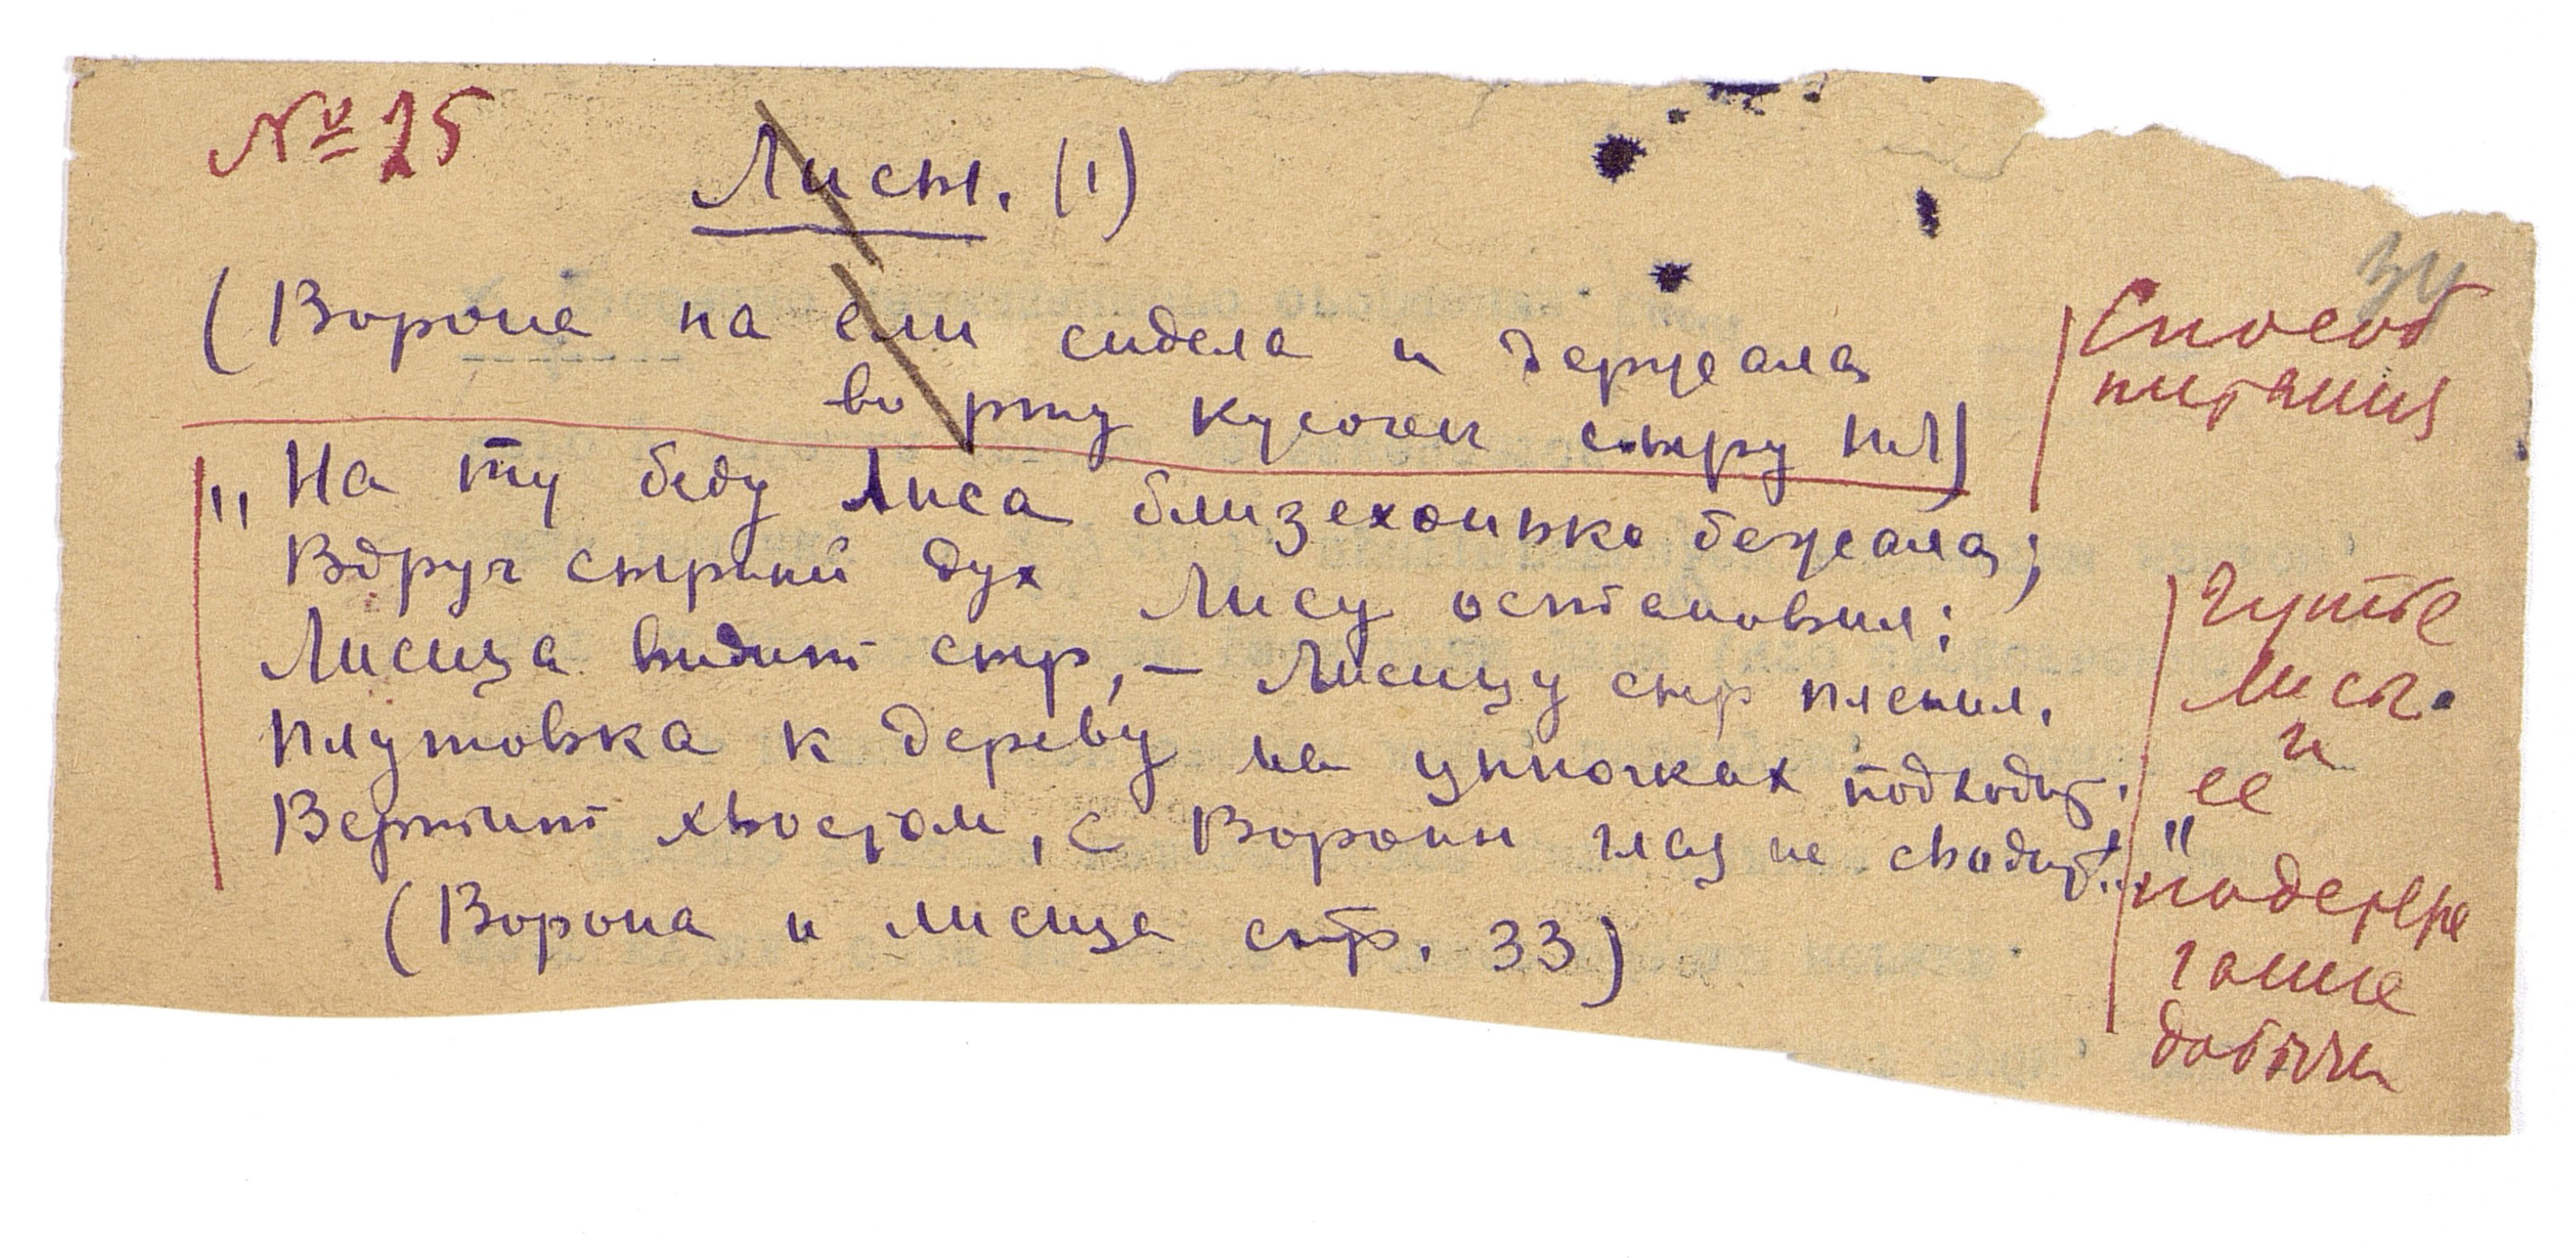 № 25
Лисы. (1)
34
(Ворона на ели сидела и держала
во рту кусочек сыру
"На ту беду Лиса близехонько бежала;
Вдруг сырный дух Лису остановил:
Лисица видит сыр, – Лисицу сыр пленил.
Плутовка к дереву на цыпочках подходит.
Вертит хвостом, с Вороны глаз не сводит..."
(Ворона и лисица стр. 33)
Способ
питания
Чутье
лисы
и
ее
подстере
гание
добычи